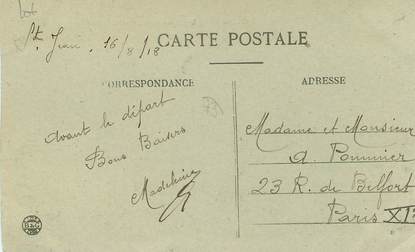 St Jean, 16/8/18
CARTE POSTALE
CORRESPONDANCE
ADRESSE
avant le départ
Bons Baisers
Madeleine
Madame et Monsieur
A. Pommier
23 R. de Belfort
Paris XIe